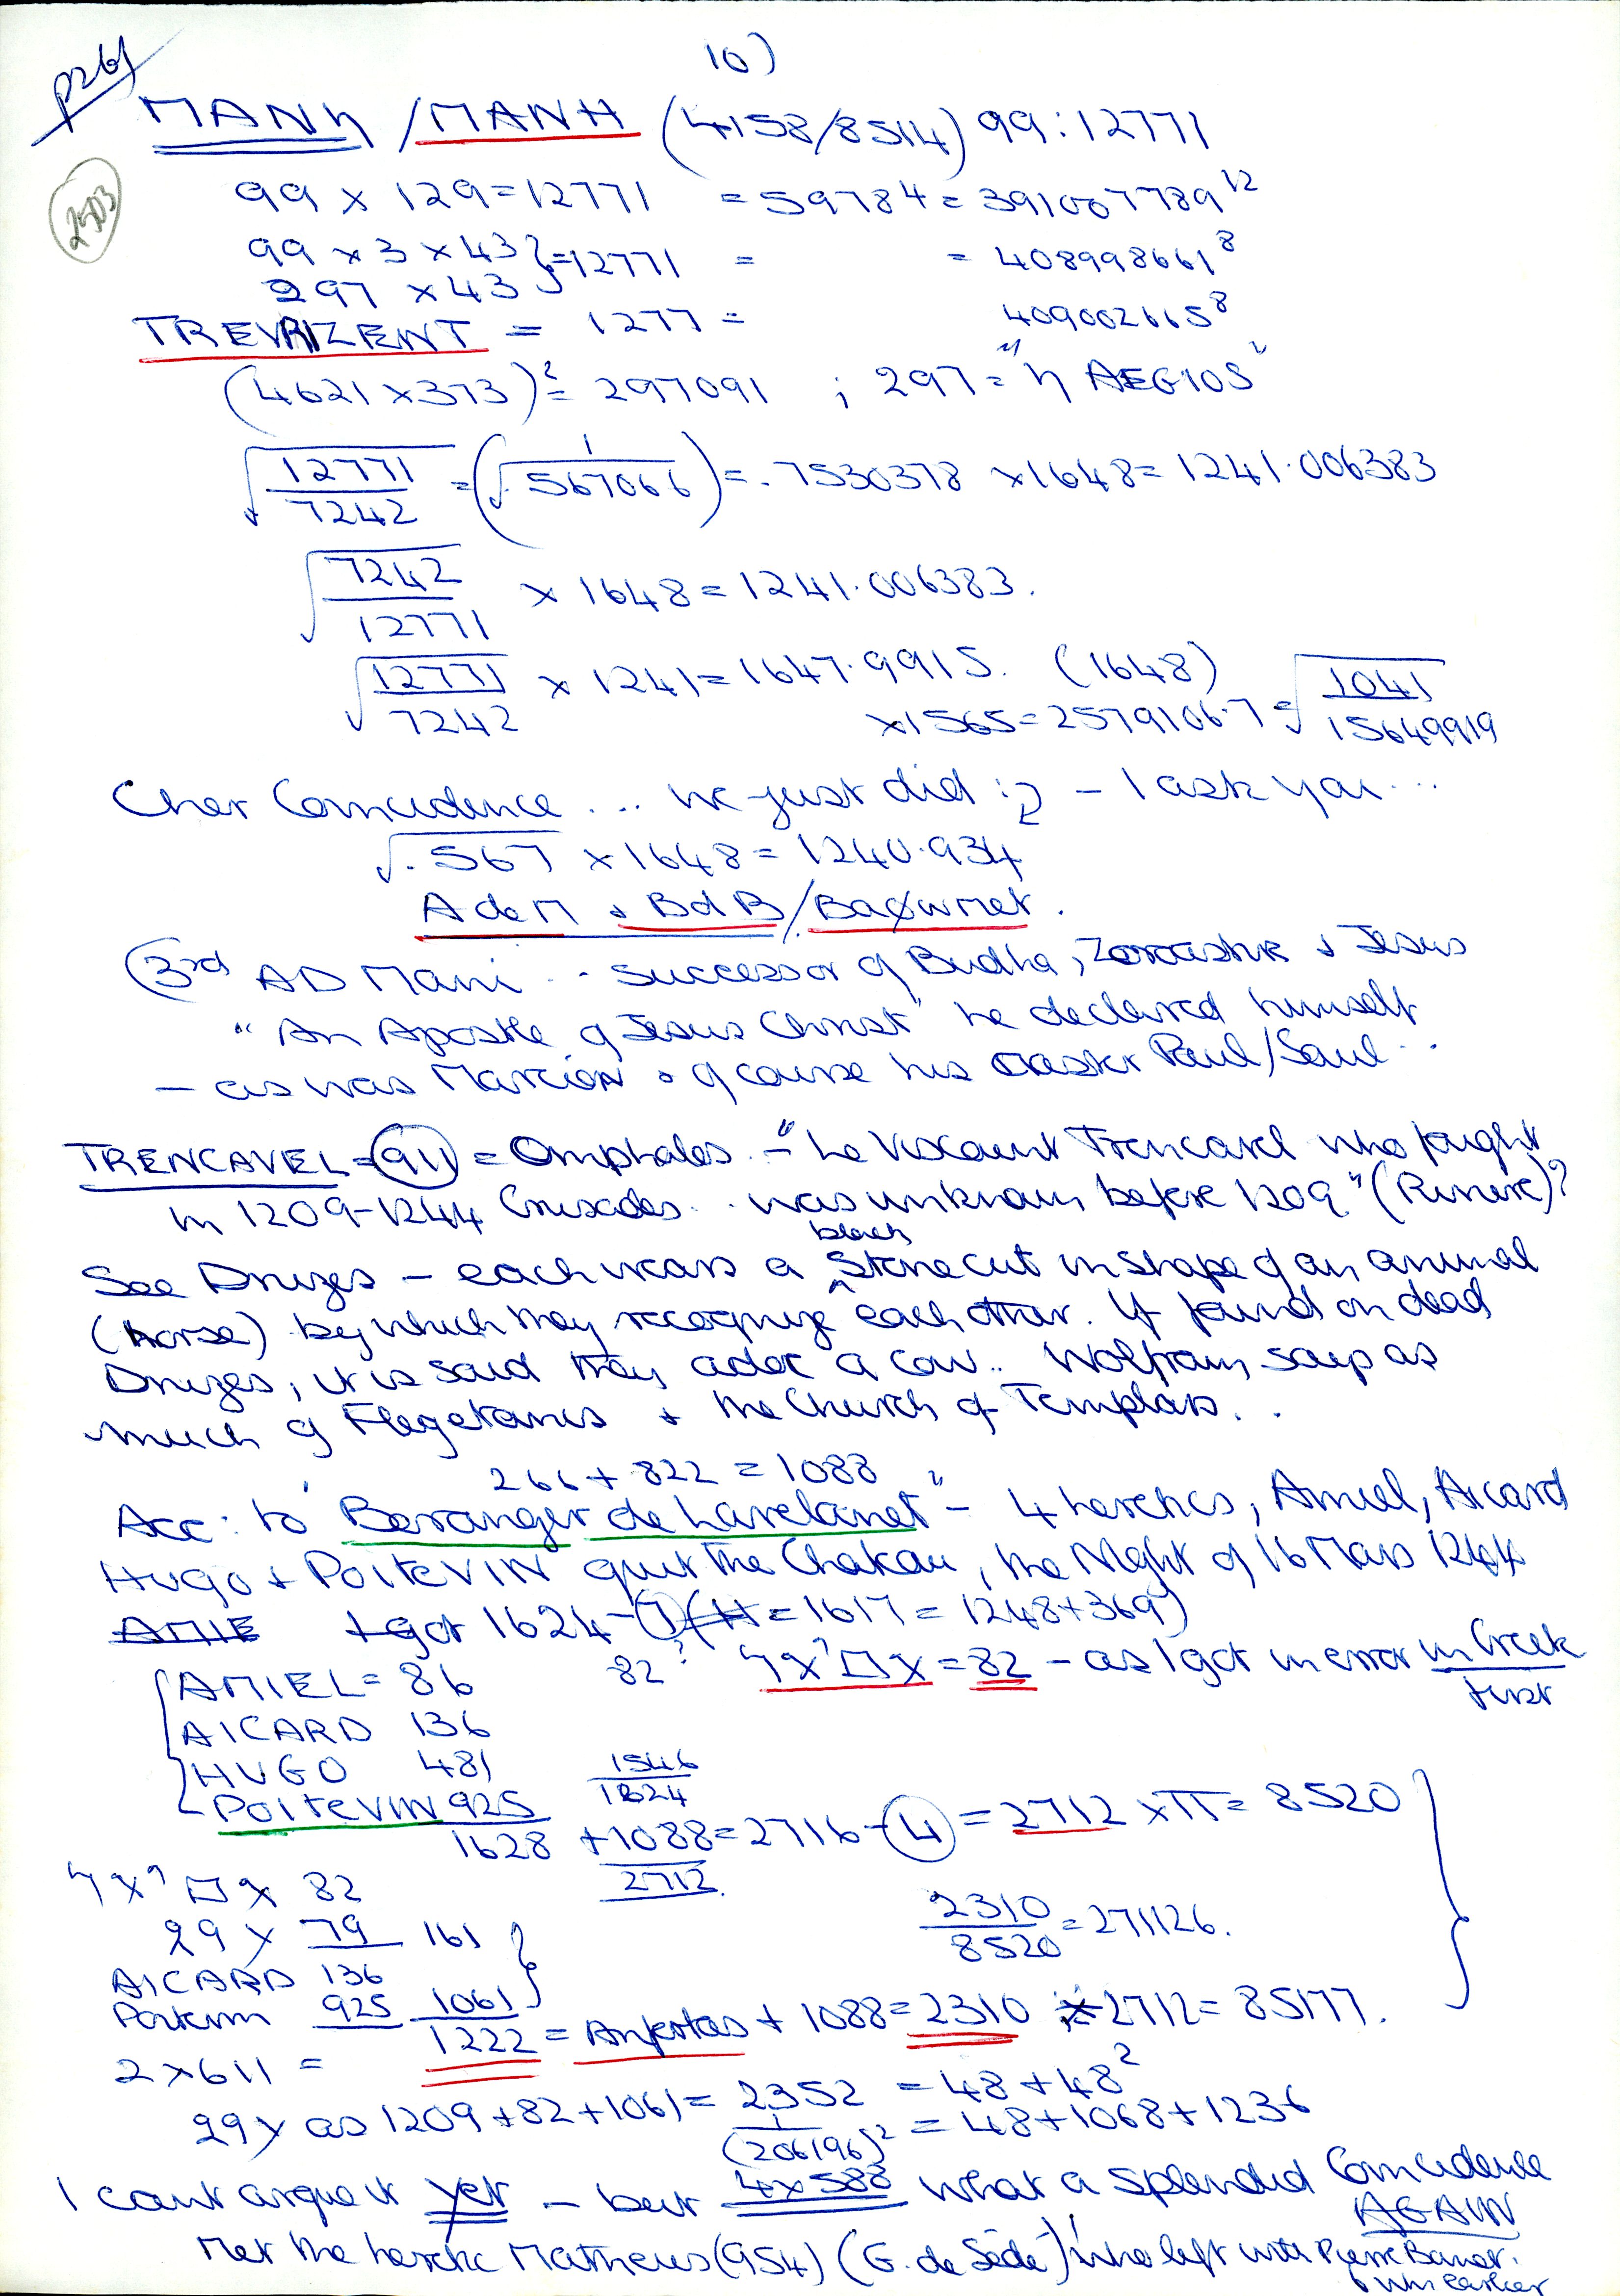 10)
p261
MANh / MANH (4158/8514) 99:12771
2503
99 x 129 = 12771 = 59784 = 391007789 12
99 x 3 x 43 } = 12771 = = 408998661 8
297 x 43
TREVRIZENT = 1277 = 409002665 8
(4621 x 373)² = 297091 ; 297 = "h AEGIOS"
√12771/7242 = (1/√.567066) = .7530378 x 1648 = 1241.006383
√7242/12771 x 1648 = 1241.006383.
√12771/7242 x 1241 = 1647.9915. (1648)
x 1565 = 2579106.7 = √1041/15649919
Cher Coincidence ... we just did :? - I ask you ...
√.567 x 1648 = 1240.934
A de M + BdB / BaφwMet.
(3rd AD Mani .. successor of Budha, Zoroastre + Jesus
"An Apostle of Jesus Christ" he declared himself
- as was Marcion + of course his master Paul/Saul ..
TRENCAVEL = 911 = Omphalos. - "Le Viscount Trencavel who fought
in 1209-1244 Crusades .. was unknown before 1209" ( )?
See Druzes - each wears a black stone cut in shape of an animal
(horse) by which they recognize each other. If found on dead
Druzes, it is said they adore a cow .. Wolfram says as
much of Flegetanis + the Church of Templars. .
266 + 822 = 1088
Acc: to "Beranger de Lavelanet" - 4 heretics, Amiel, Aicard
Hugo + PoitevIN quit the Chateau, the Night of 16 Mars 1244
AMIE I got 1624 - 7 (H = 1617 = 1248 + 369)
AMIEL = 86 82? = 82 - as I got in error in Greek first
AICARD 136
HUGO 481 1546/1624
PoiteVIN 925
1628 + 1088 = 2716 - 4 = 2712 x π = 8520
2712
82
29 y 79 161
2310/8520 = 271126.
AICARD 136
Poitevin 925 1061
1222 = Anfortas + 1088 = 2310 ÷ 2712 = 85177.
2 x 611 =
29 y as 1209 + 82 + 1061 = 2352 = 48 + 48²
1/(206196)² = 48 + 1068 + 1236
I can't argue it yet - but 4 x 588 what a splendid Coincidence AGAIN
Met the heretic Matheus (954) (G. de Sède) who left with Pierre Bonet.